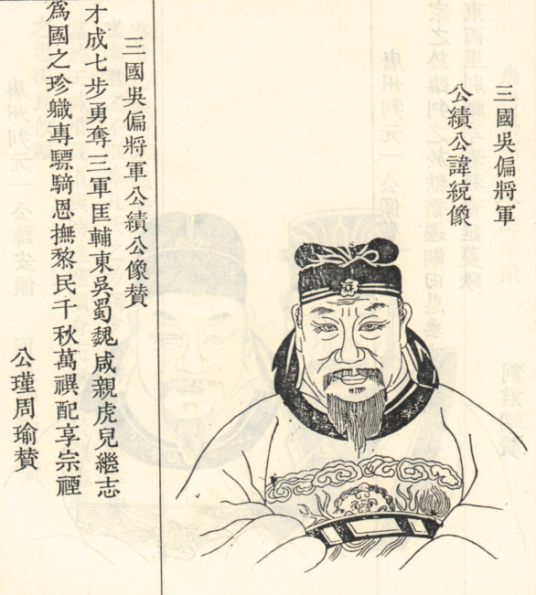 三國吳偏將軍
公績公諱統像
三國吳偏將軍公績公像贊
才成七步勇奪三軍匡輔東吳蜀魏咸親虎兒繼志
爲國之珍軄專驃騎恩撫黎民千秋萬禩配享宗禋
公瑾周瑜贊